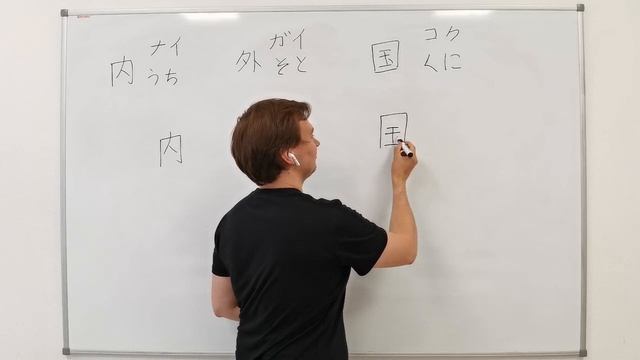 内 ナイ うち
外 ガイ そと
国 コク くに
内 国